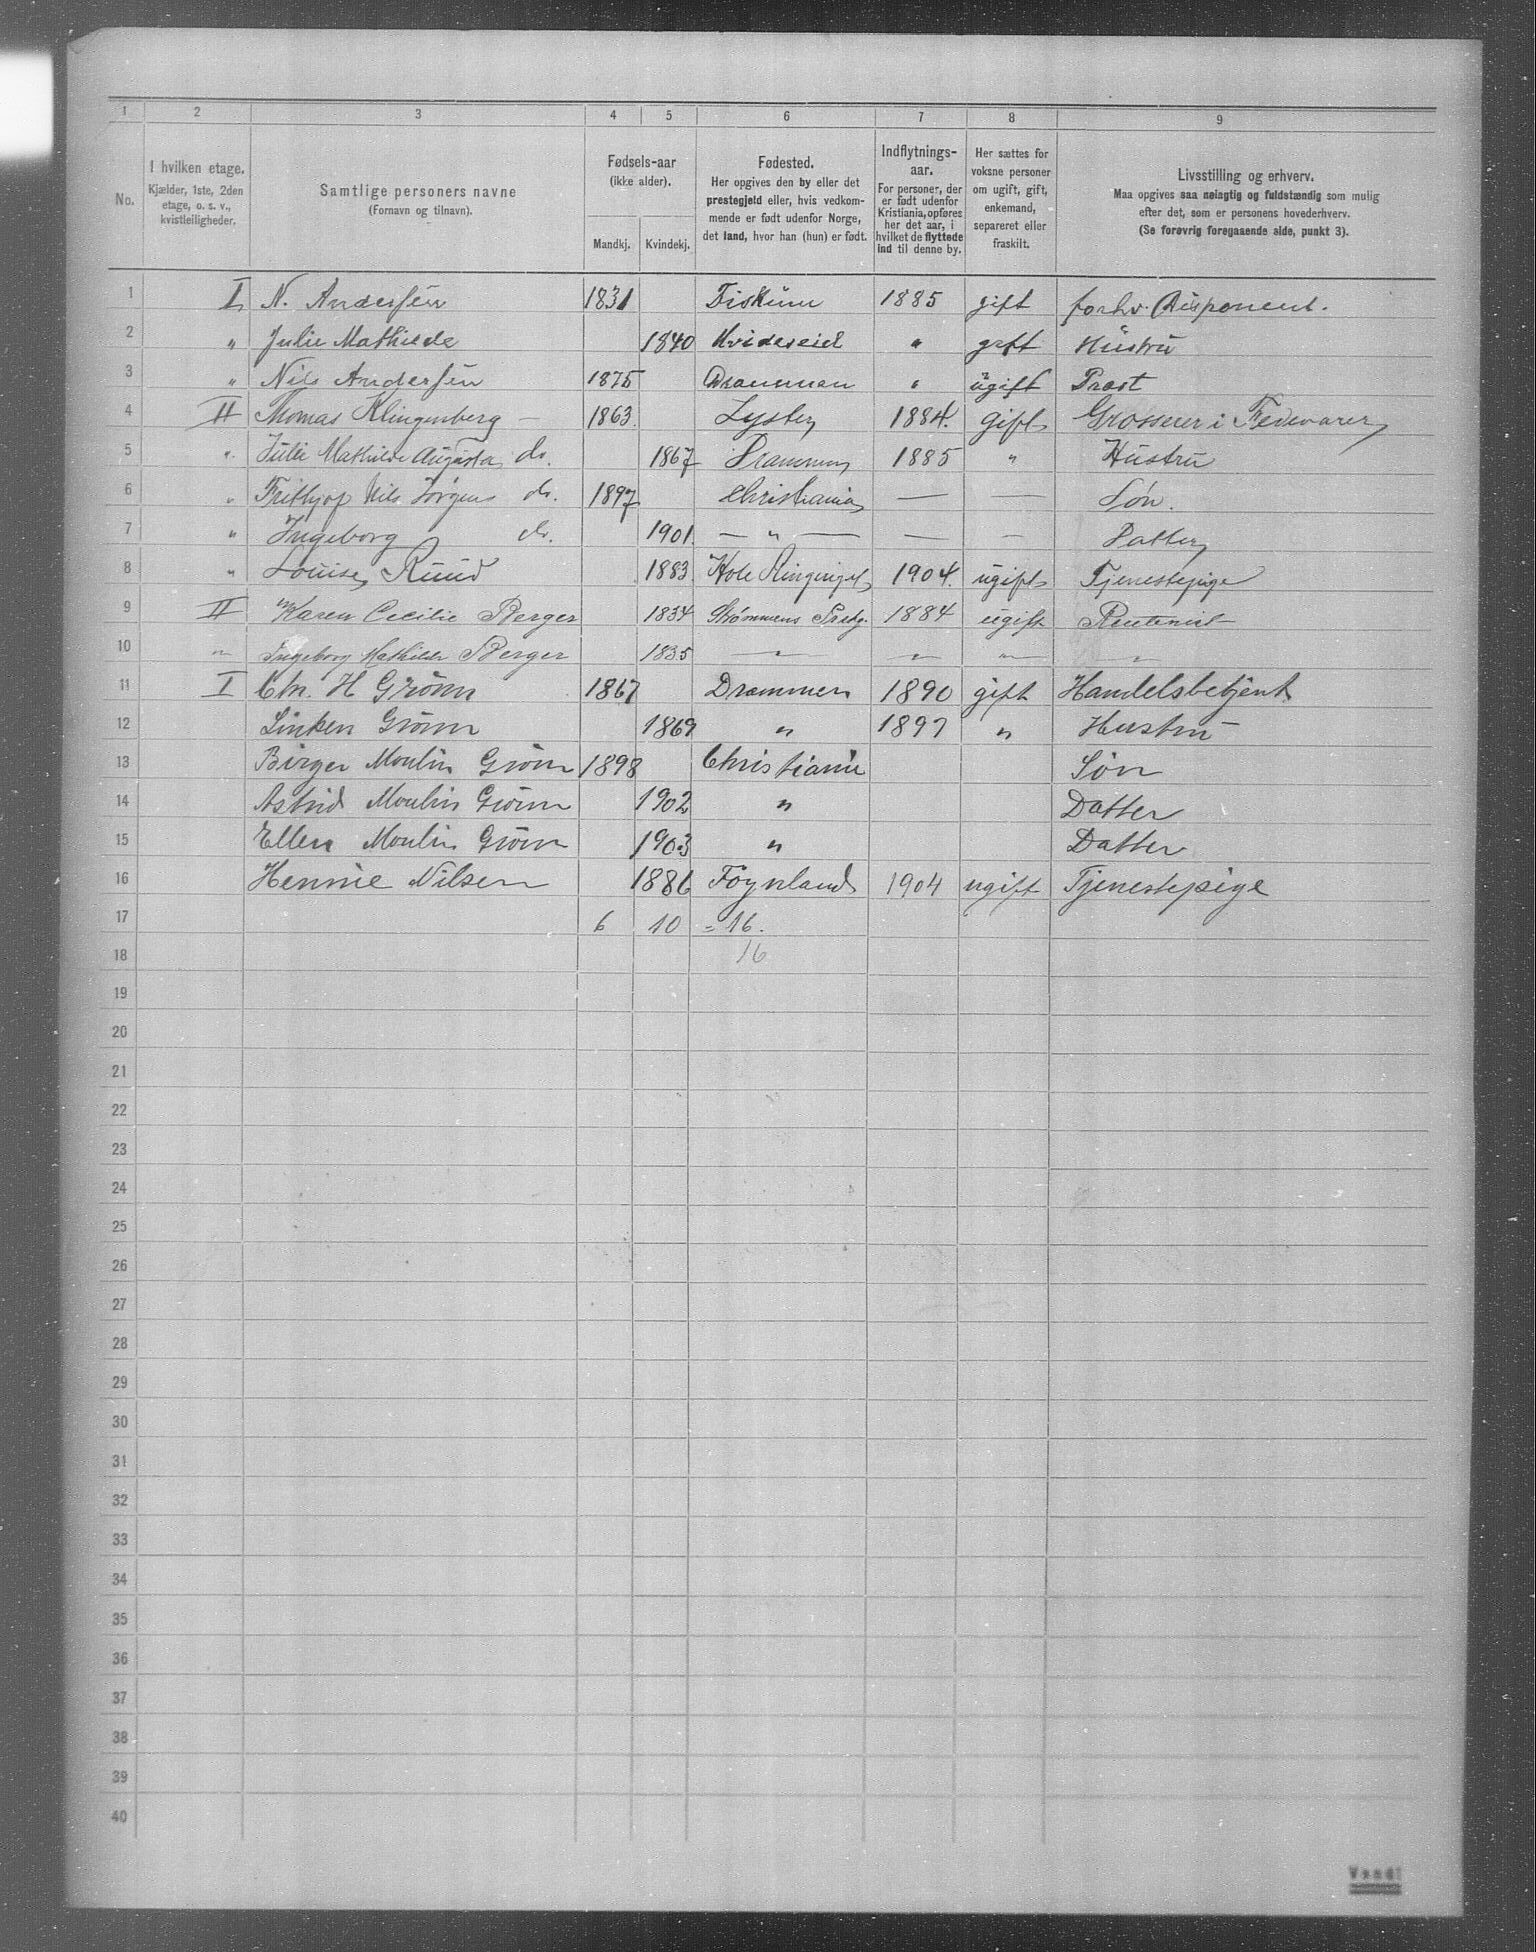 1 2 3 4 5 6 7 8 9
No.
I hvilken etage.
Kjælder, 1ste, 2den
etage, o. s. v.,
kvistleiligheder.
Samtlige personers navne
(Fornavn og tilnavn).
Fødsels-aar
(ikke alder).
Mandkj. Kvindekj.
Fødested.
Her opgives den by eller det
prestegjeld eller, hvis vedkom-
mende er født udenfor Norge,
det land, hvor han (hun) er født.
Indflytnings-
aar.
For personer, der
er født udenfor
Kristiania, opføres
her det aar, i
hvilket de flyttede
ind til denne by.
Her sættes for
voksne personer
om ugift, gift,
enkemand,
separeret eller
fraskilt.
Livsstilling og erhverv.
Maa opgives saa nøiagtig og fuldstændig som mulig
efter det, som er personens hovederhverv.
(Se forøvrig foregaaende side, punkt 3).
1 I N. Andersen 1831 Fiskum 1885 gift forhv. Disponent.
2 " Julie Mathilde 1840 Hvideseid " gift Hustru
3 " Nils Andersen 1875 Drammen " ugift Præst
4 II Thomas Klingenberg – 1863. Lyster 1884. gift Grosserer i Fedevarer
5 " Julie Mathilde Augusta do. 1867 Drammen 1885 " Hustru
6 " Frithjof Nils Jørgen do. 1897 Christiania — — Søn.
7 " Ingeborg do. 1901. — " — — — Datter
8 " Louise Ruud 1883 Hole Ringerige 1904. ugift Tjenestepige
9 II Karen Cecilie Berger 1834 Strømmens Prstg. 1884 ugift Rentenist
10 " Ingeborg Mathilde Berger 1835 " " " "
11 I Chr. H Grönn 1867 Drammen 1890 gift Handelsbetjent
12 Linken Grönn 1869 " 1897 " Hustru
13 Birger Moulin Grönn 1898 Christiania Søn
14 Astrid Moulin Grönn 1902 " Datter
15 Ellen Moulin Grönn 1903 " Datter
16 Hennie Nilsen 1886 Föynland 1904 ugift Tjenestepige
17 6 10 = 16.
18 16
19
20
21
22
23
24
25
26
27
28
29
30
31
32
33
34
35
36
37
38
39
40
Vend!